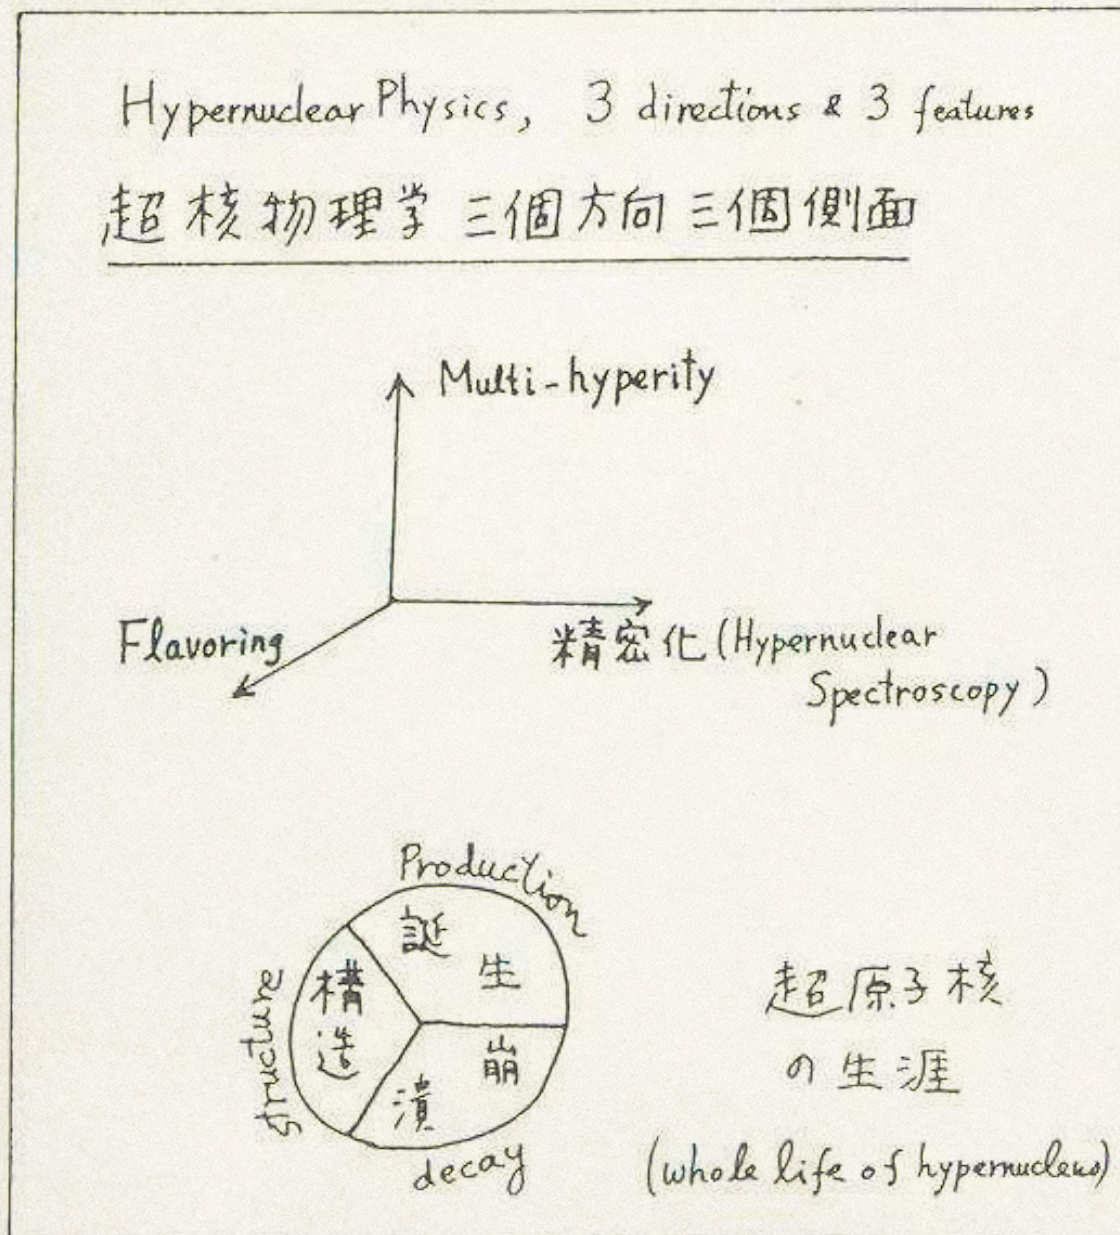 Hypernuclear Physics, 3 directions & 3 features
超核物理学 三個方向 三個側面
Multi-hyperity
Flavoring
精密化(Hypernuclear
Spectroscopy)
Production
誕生
structure
構造
崩潰
decay
超原子核
の生涯
(whole life of hypernucleus)